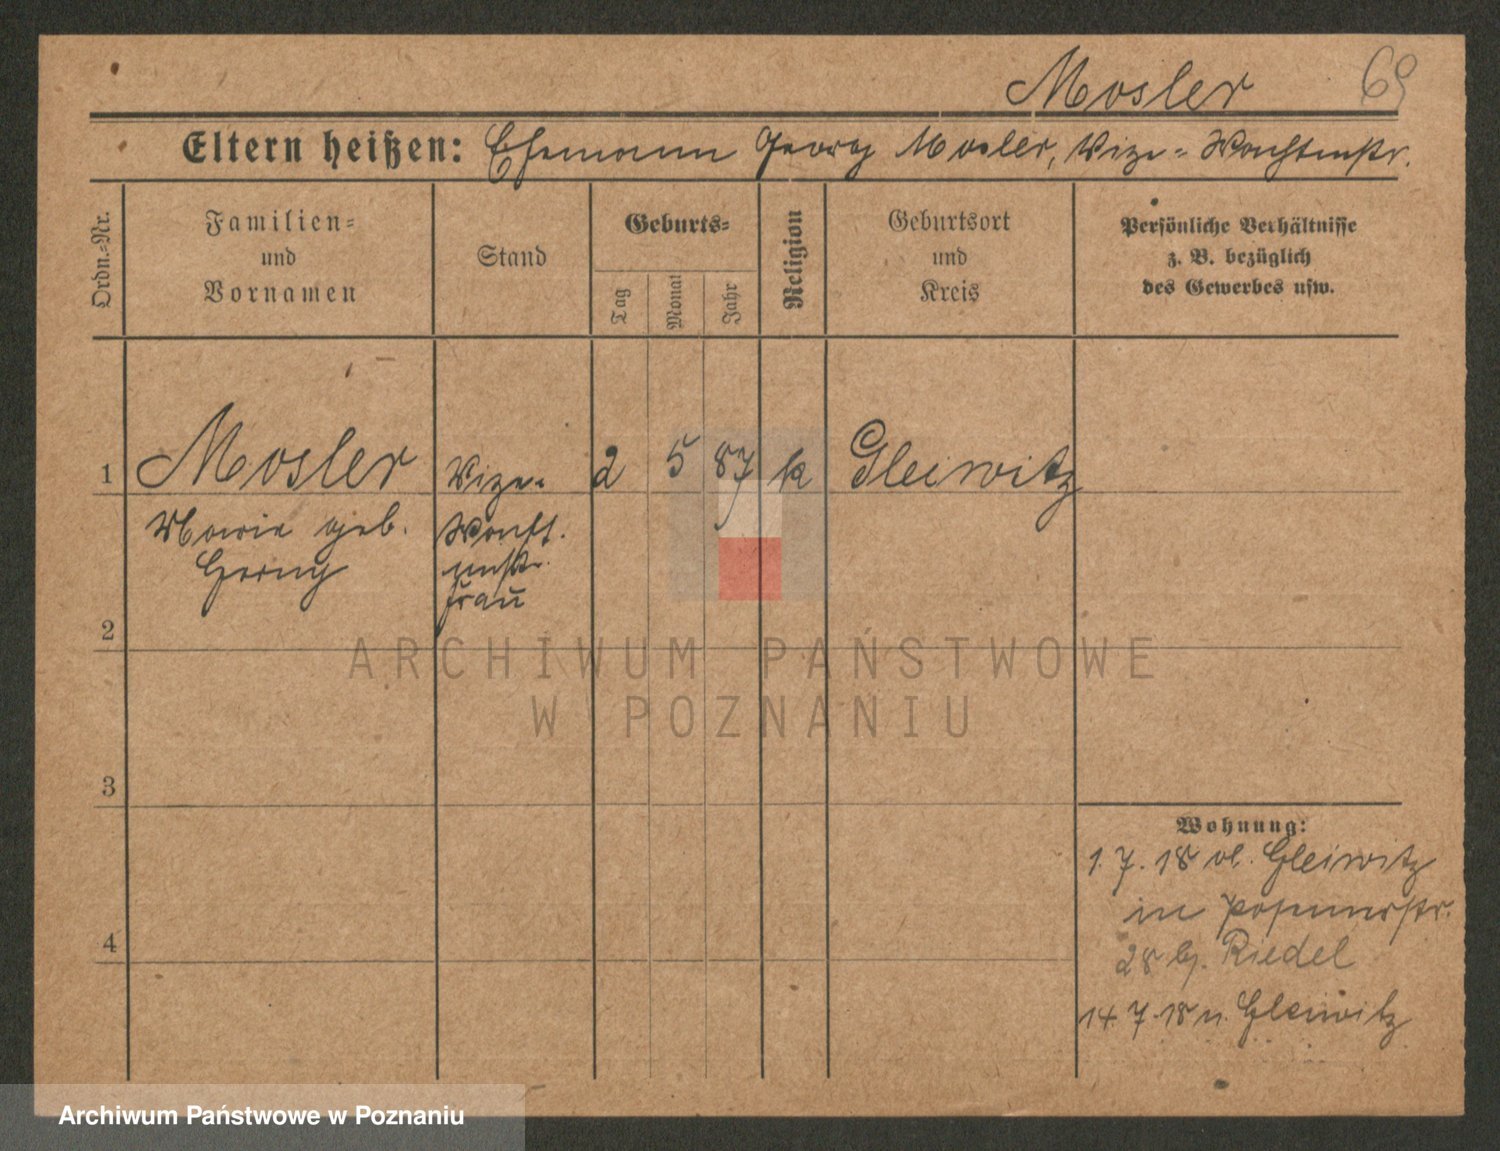 Mosler 69
Eltern heißen: Ehemann Georg Mosler, Vize-Wachtmstr.
Ordn.-Nr.
Familien-
und
Vornamen
Stand
Geburts-
Tag
Monat
Jahr
Religion
Geburtsort
und
Kreis
Persönliche Verhältnisse
z. B. bezüglich
des Gewerbes usw.
1 Mosler Vize- 2 5 87 k Gleiwitz
Marie geb. Wacht.
mstr.
Frau
2
3
4
Wohnung:
1.7.18 v. Gleiwitz
in Posenerstr.
28 b. Riedel
14.7.18 n. Gleiwitz
ARCHIWUM PAŃSTWOWE
W POZNANIU
Archiwum Państwowe w Poznaniu